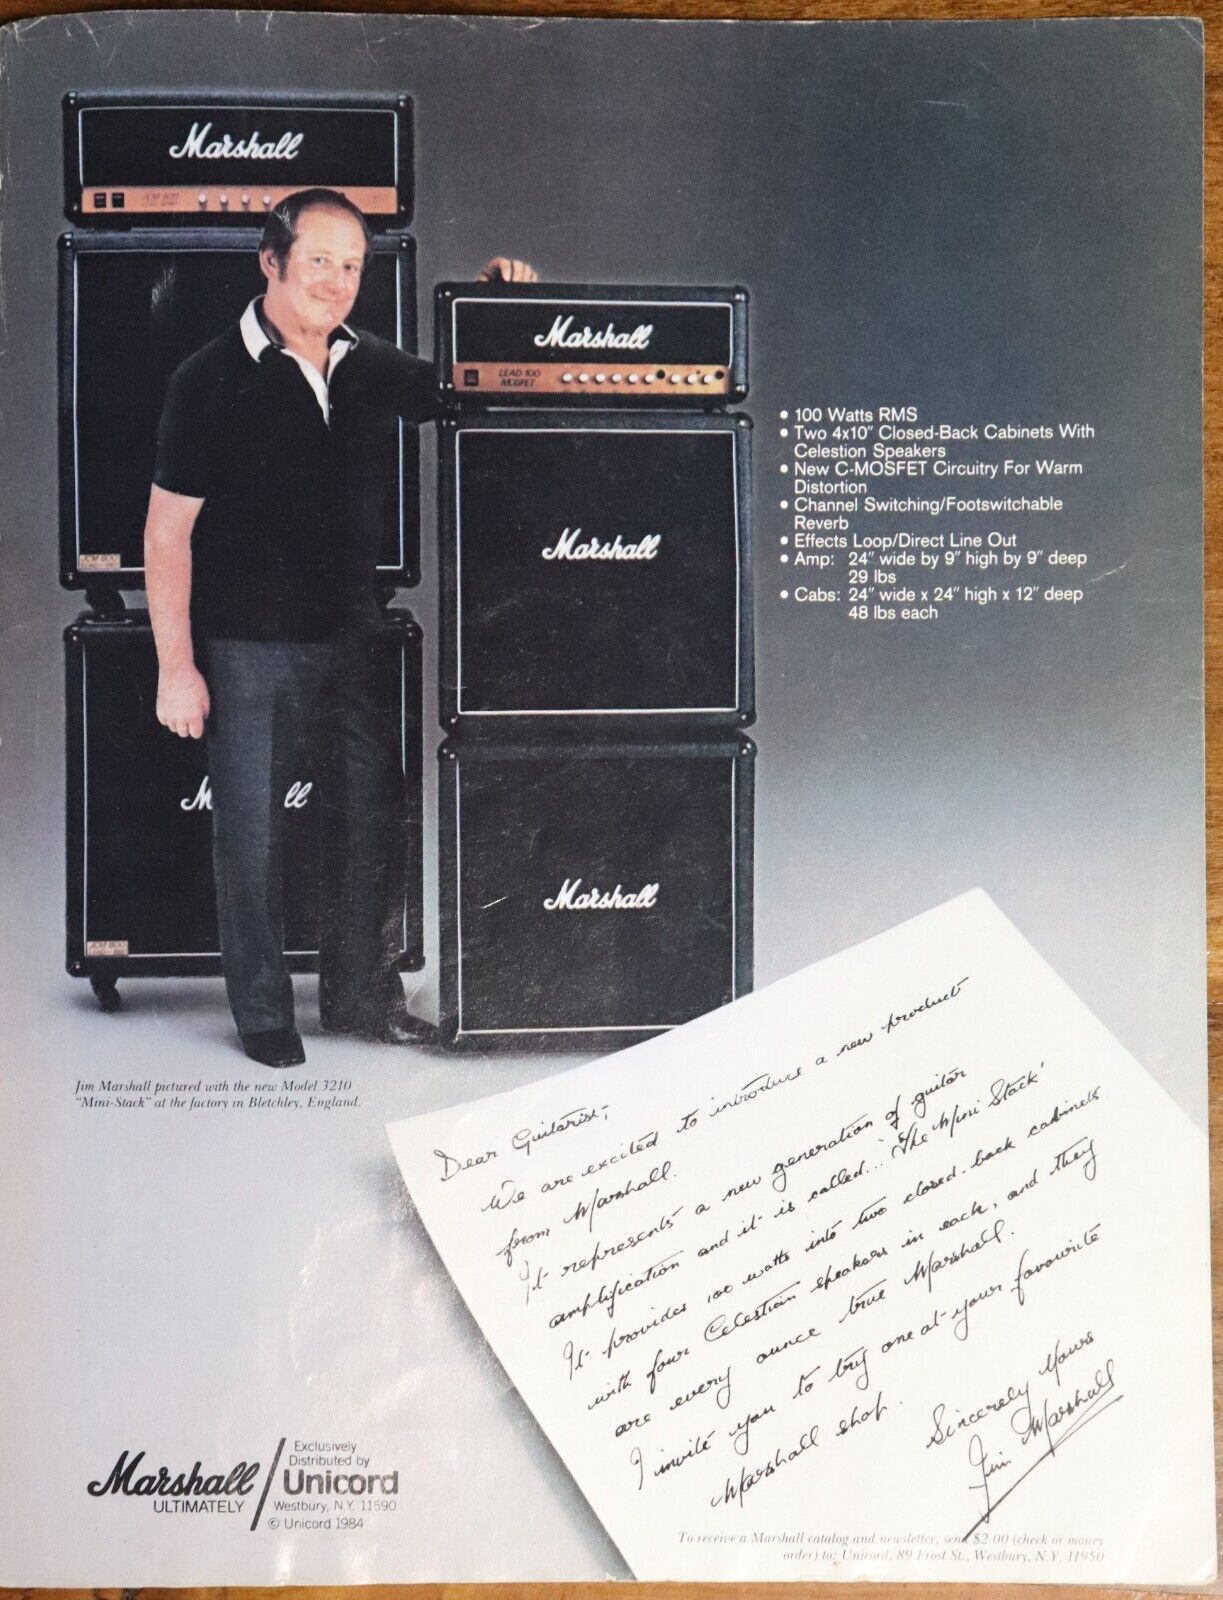 Marshall
JCM 800
LEAD SERIES
Marshall
LEAD 100
MOSFET
Marshall
JCM 800
M ll
JCM 800
Marshall
• 100 Watts RMS
• Two 4x10" Closed-Back Cabinets With
Celestion Speakers
• New C-MOSFET Circuitry For Warm
Distortion
• Channel Switching/Footswitchable
Reverb
• Effects Loop/Direct Line Out
• Amp: 24" wide by 9" high by 9" deep
29 lbs
• Cabs: 24" wide x 24" high x 12" deep
48 lbs each
Jim Marshall pictured with the new Model 3210
"Mini-Stack" at the factory in Bletchley, England.
Dear Guitarist,
We are excited to introduce a new product
from Marshall.
It represents a new generation of guitar
amplification and it is called... 'The Mini Stack'
It provides 100 watts into two closed-back cabinets
with four Celestion speakers in each, and they
are every ounce true Marshall.
I invite you to try one at your favourite
Marshall shop.
Sincerely Yours
Jim Marshall
To receive a Marshall catalog and newsletter, send $2.00 (check or money
order) to: Unicord, 89 Frost St., Westbury, N.Y. 11950
Marshall
ULTIMATELY
Exclusively
Distributed by
Unicord
Westbury, N.Y. 11590
© Unicord 1984